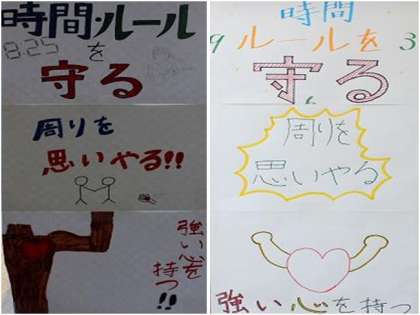 時間・ルール
8:25
を
守る
周りを
思いやる!!
強い心を
持つ!!
時間
9 ルールを 3
守る
周りを
思いやる
強い心を持つ